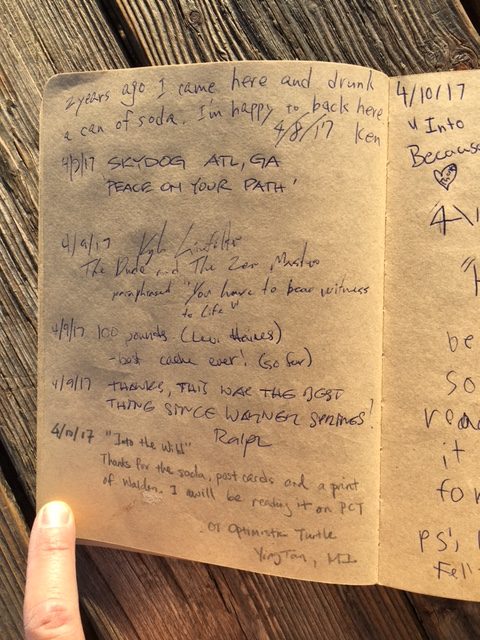 2 years ago I came here and drunk
a can of soda. I'm happy to back here
4/8/17 Ken
4/9/17 SKYDOG ATL, GA
'PEACE ON YOUR PATH'
4/9/17 Kyle
The Dude and The Zen Master
paraphrased "You have to bear witness
to life"
4/9/17 100 pounds (Levi Haines)
-best cache ever! (so far)
4/9/17 THANKS, THIS WAS THE BEST
THING SINCE WARNER SPRINGS!
Ralph
4/10/17 "Into the Wild"
Thanks for the soda, post cards and a print
of Walden. I will be reading it on PCT
Optimistic Turtle
YingTan, MI
4/10/17
"Into
Because
4/1
"H
be
so
read
it
for
PS!, I
Fell